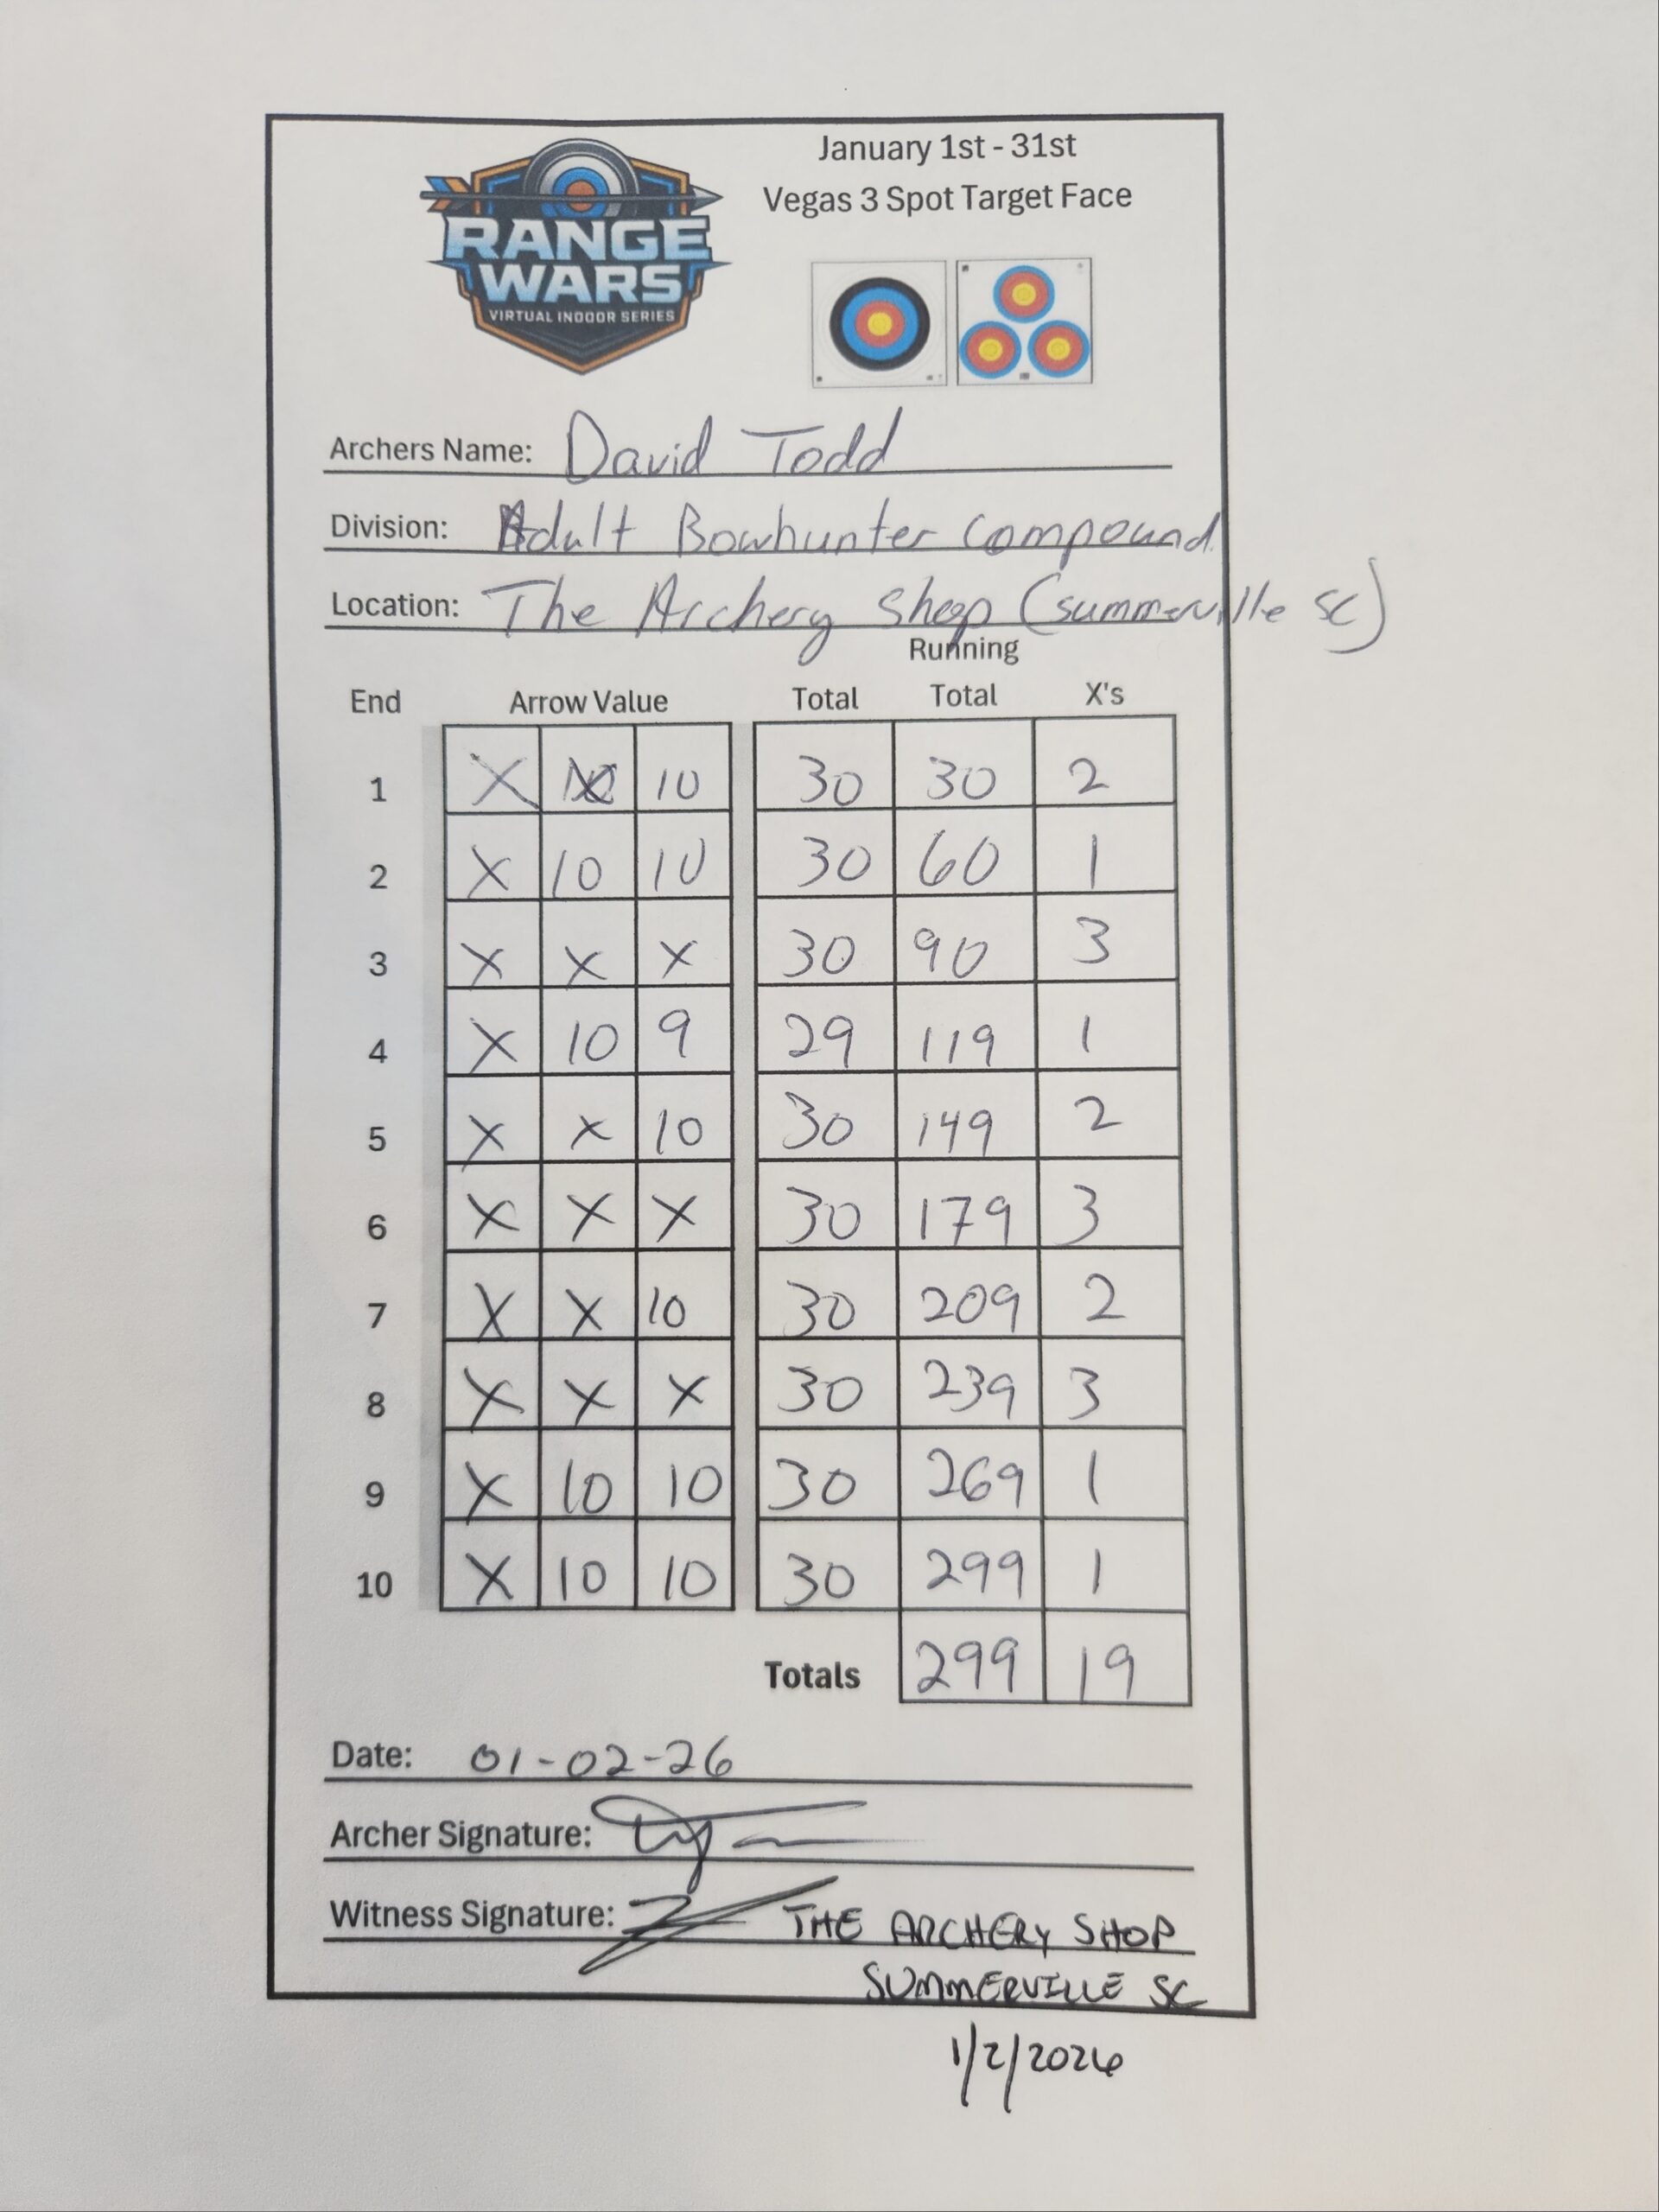 January 1st - 31st
Vegas 3 Spot Target Face
RANGE
WARS
VIRTUAL INDOOR SERIES
Archers Name: David Todd
Division: Adult Bowhunter Compound
Location: The Archery Shop (Summerville SC)
Running
End Arrow Value Total Total X's
1 X X 10 30 30 2
2 X 10 10 30 60 1
3 X X X 30 90 3
4 X 10 9 29 119 1
5 X X 10 30 149 2
6 X X X 30 179 3
7 X X 10 30 209 2
8 X X X 30 239 3
9 X 10 10 30 269 1
10 X 10 10 30 299 1
Totals 299 19
Date: 01-02-26
Archer Signature:
Witness Signature: THE ARCHERY SHOP
SUMMERVILLE SC
1/2/2026